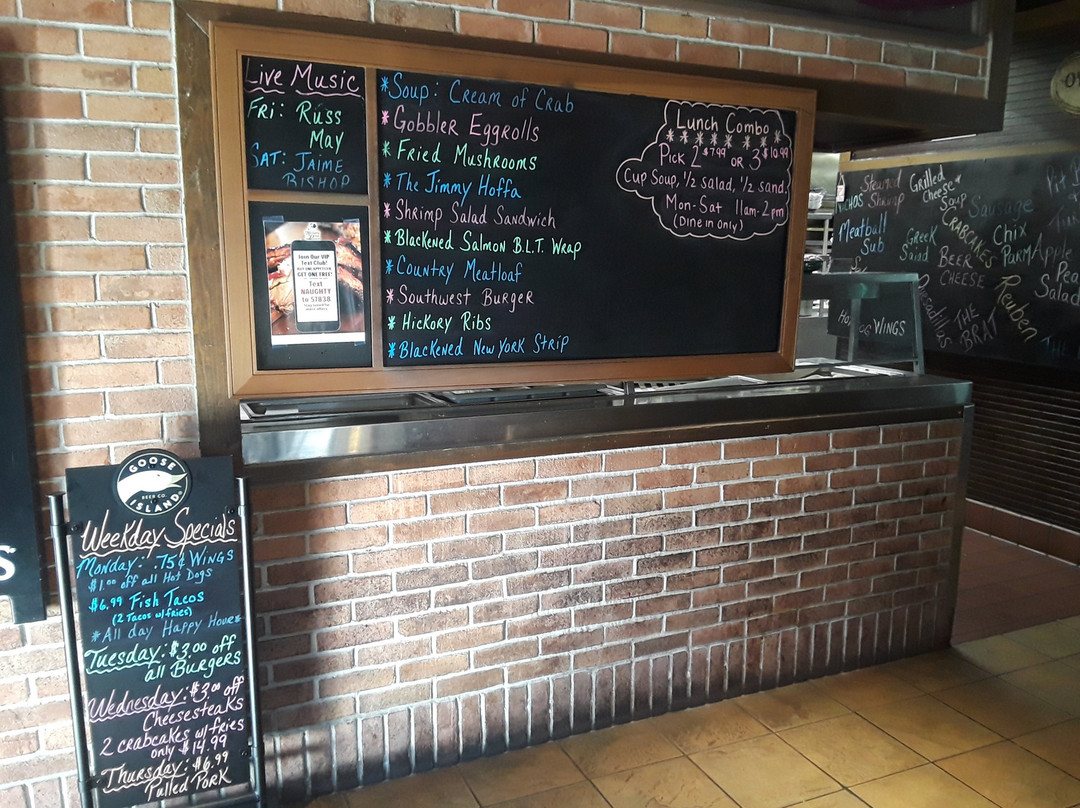 Live Music
Fri: Russ
May
Sat: Jaime
Bishop
Join Our VIP
Text Club!
GET ONE FREE!
Text
NAUGHTY
to 57838
*Soup: Cream of Crab
*Gobbler Eggrolls
*Fried Mushrooms
*The Jimmy Hoffa
*Shrimp Salad Sandwich
*Blackened Salmon B.L.T. Wrap
*Country Meatloaf
*Southwest Burger
*Hickory Ribs
*Blackened New York Strip
Lunch Combo
Pick 2 $7.99 or 3 $10.99
Cup Soup, 1/2 salad, 1/2 sand.
Mon-Sat 11am-2pm
(Dine in only)
Steamed
Shrimp
Grilled
Cheese
Soup
Sausage
Meatball
Sub
Greek
Salad
CRABCAKES
BEER
CHEESE
Chix
Parm
Apple
Salad
Reuben
THE
BRAT
WINGS
GOOSE
BEER CO.
ISLAND
Weekday Specials
Monday: .75¢ Wings
$1.00 off all Hot Dogs
$6.99 Fish Tacos
(2 Tacos w/fries)
*All day Happy Hour*
Tuesday: $3.00 off
all Burgers
Wednesday: $3.00 off
Cheesesteaks
2 crabcakes w/fries
only $14.99
Thursday: $6.99
Pulled Pork
S